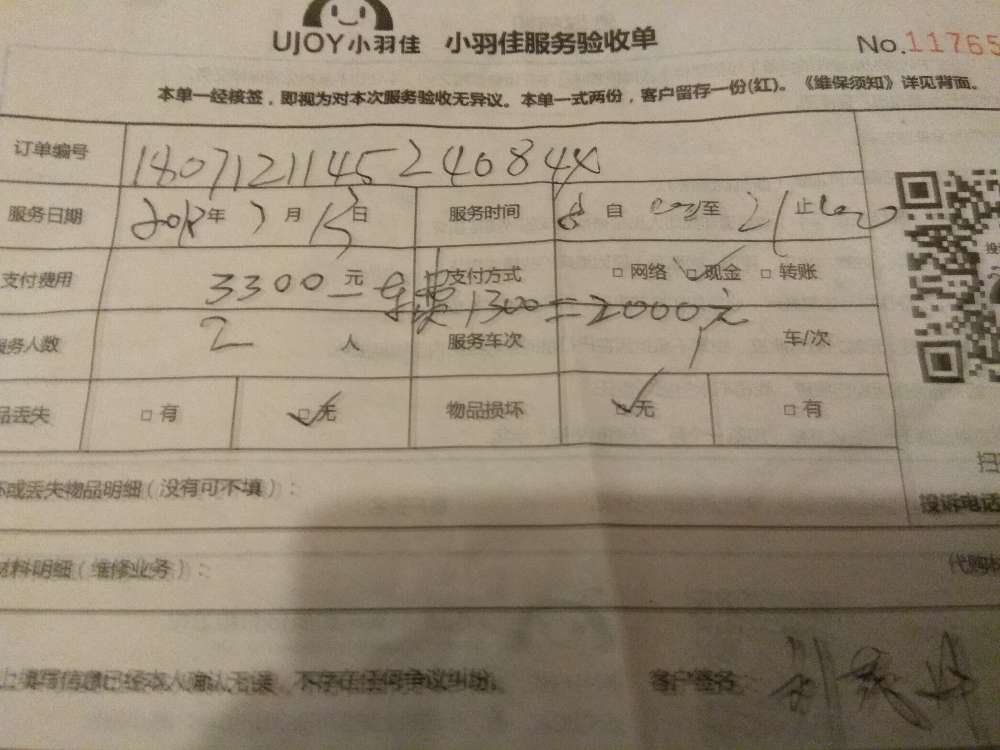 UJOY小羽佳 小羽佳服务验收单 No.11765
本单一经核签，即视为对本次服务验收无异议。本单一式两份，客户留存一份(红)。《维保须知》详见背面。
订单编号 180712114524084
服务日期 2018年7月15日 服务时间 8自 至21止
支付费用 3300元－车费1300=2000元 支付方式 □网络 □现金 □转账
服务人数 2人 服务车次 1 车/次
品丢失 □有 □无 物品损坏 □无 □有
坏或丢失物品明细（没有可不填）：
投诉电话
材料明细（维修业务）： 代购
上填写信息已经本人确认无误，不存在任何争议纠纷。 客户签名